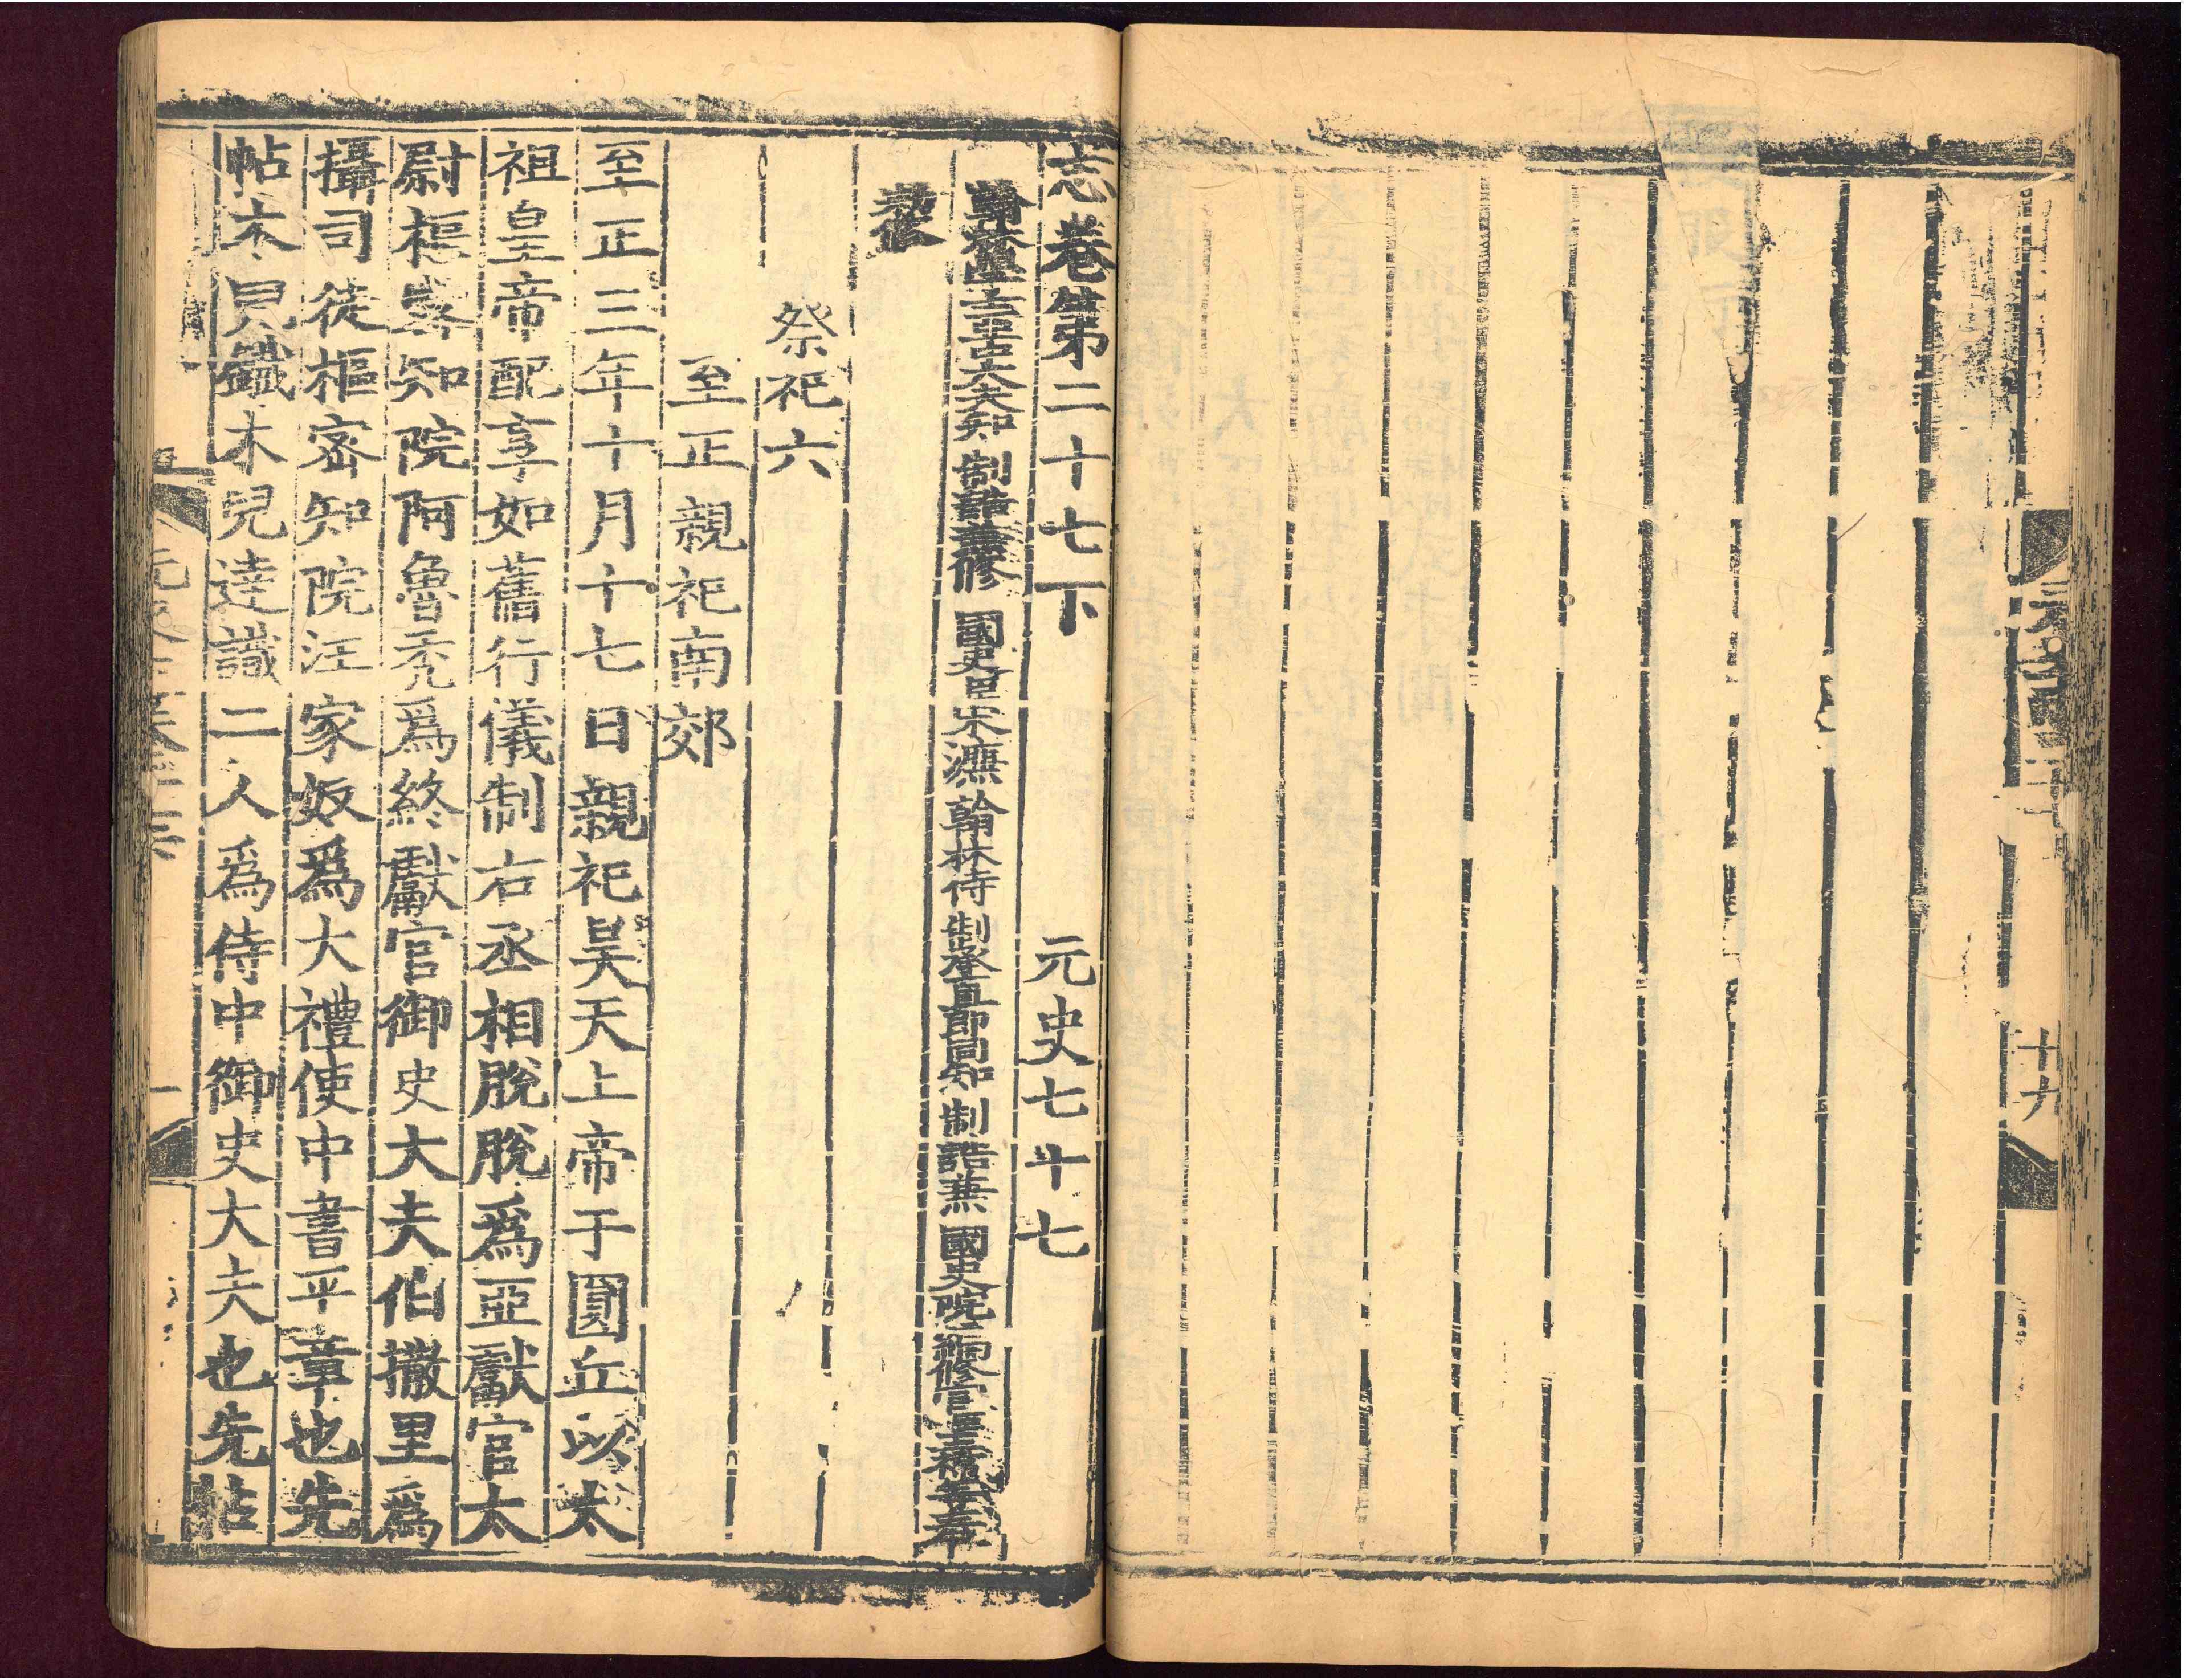 十九
志卷第二十七下 元史七十七
翰林學士亞中大夫知 制誥兼修 國史臣宋濂 翰林待 制承直郎同知 制誥兼 國史院編修官臣王禕等奉
敕修
祭祀六
至正親祀南郊
至正三年十月十七日親祀昊天上帝于圜丘以太
祖皇帝配享如舊行儀制右丞相脫脫爲亞獻官太
尉樞密知院阿魯禿爲終獻官御史大夫伯撒里爲
攝司徒樞密知院汪家奴爲大禮使中書平章也先
帖木兒鐵木兒達識二人爲侍中御史大夫也先帖